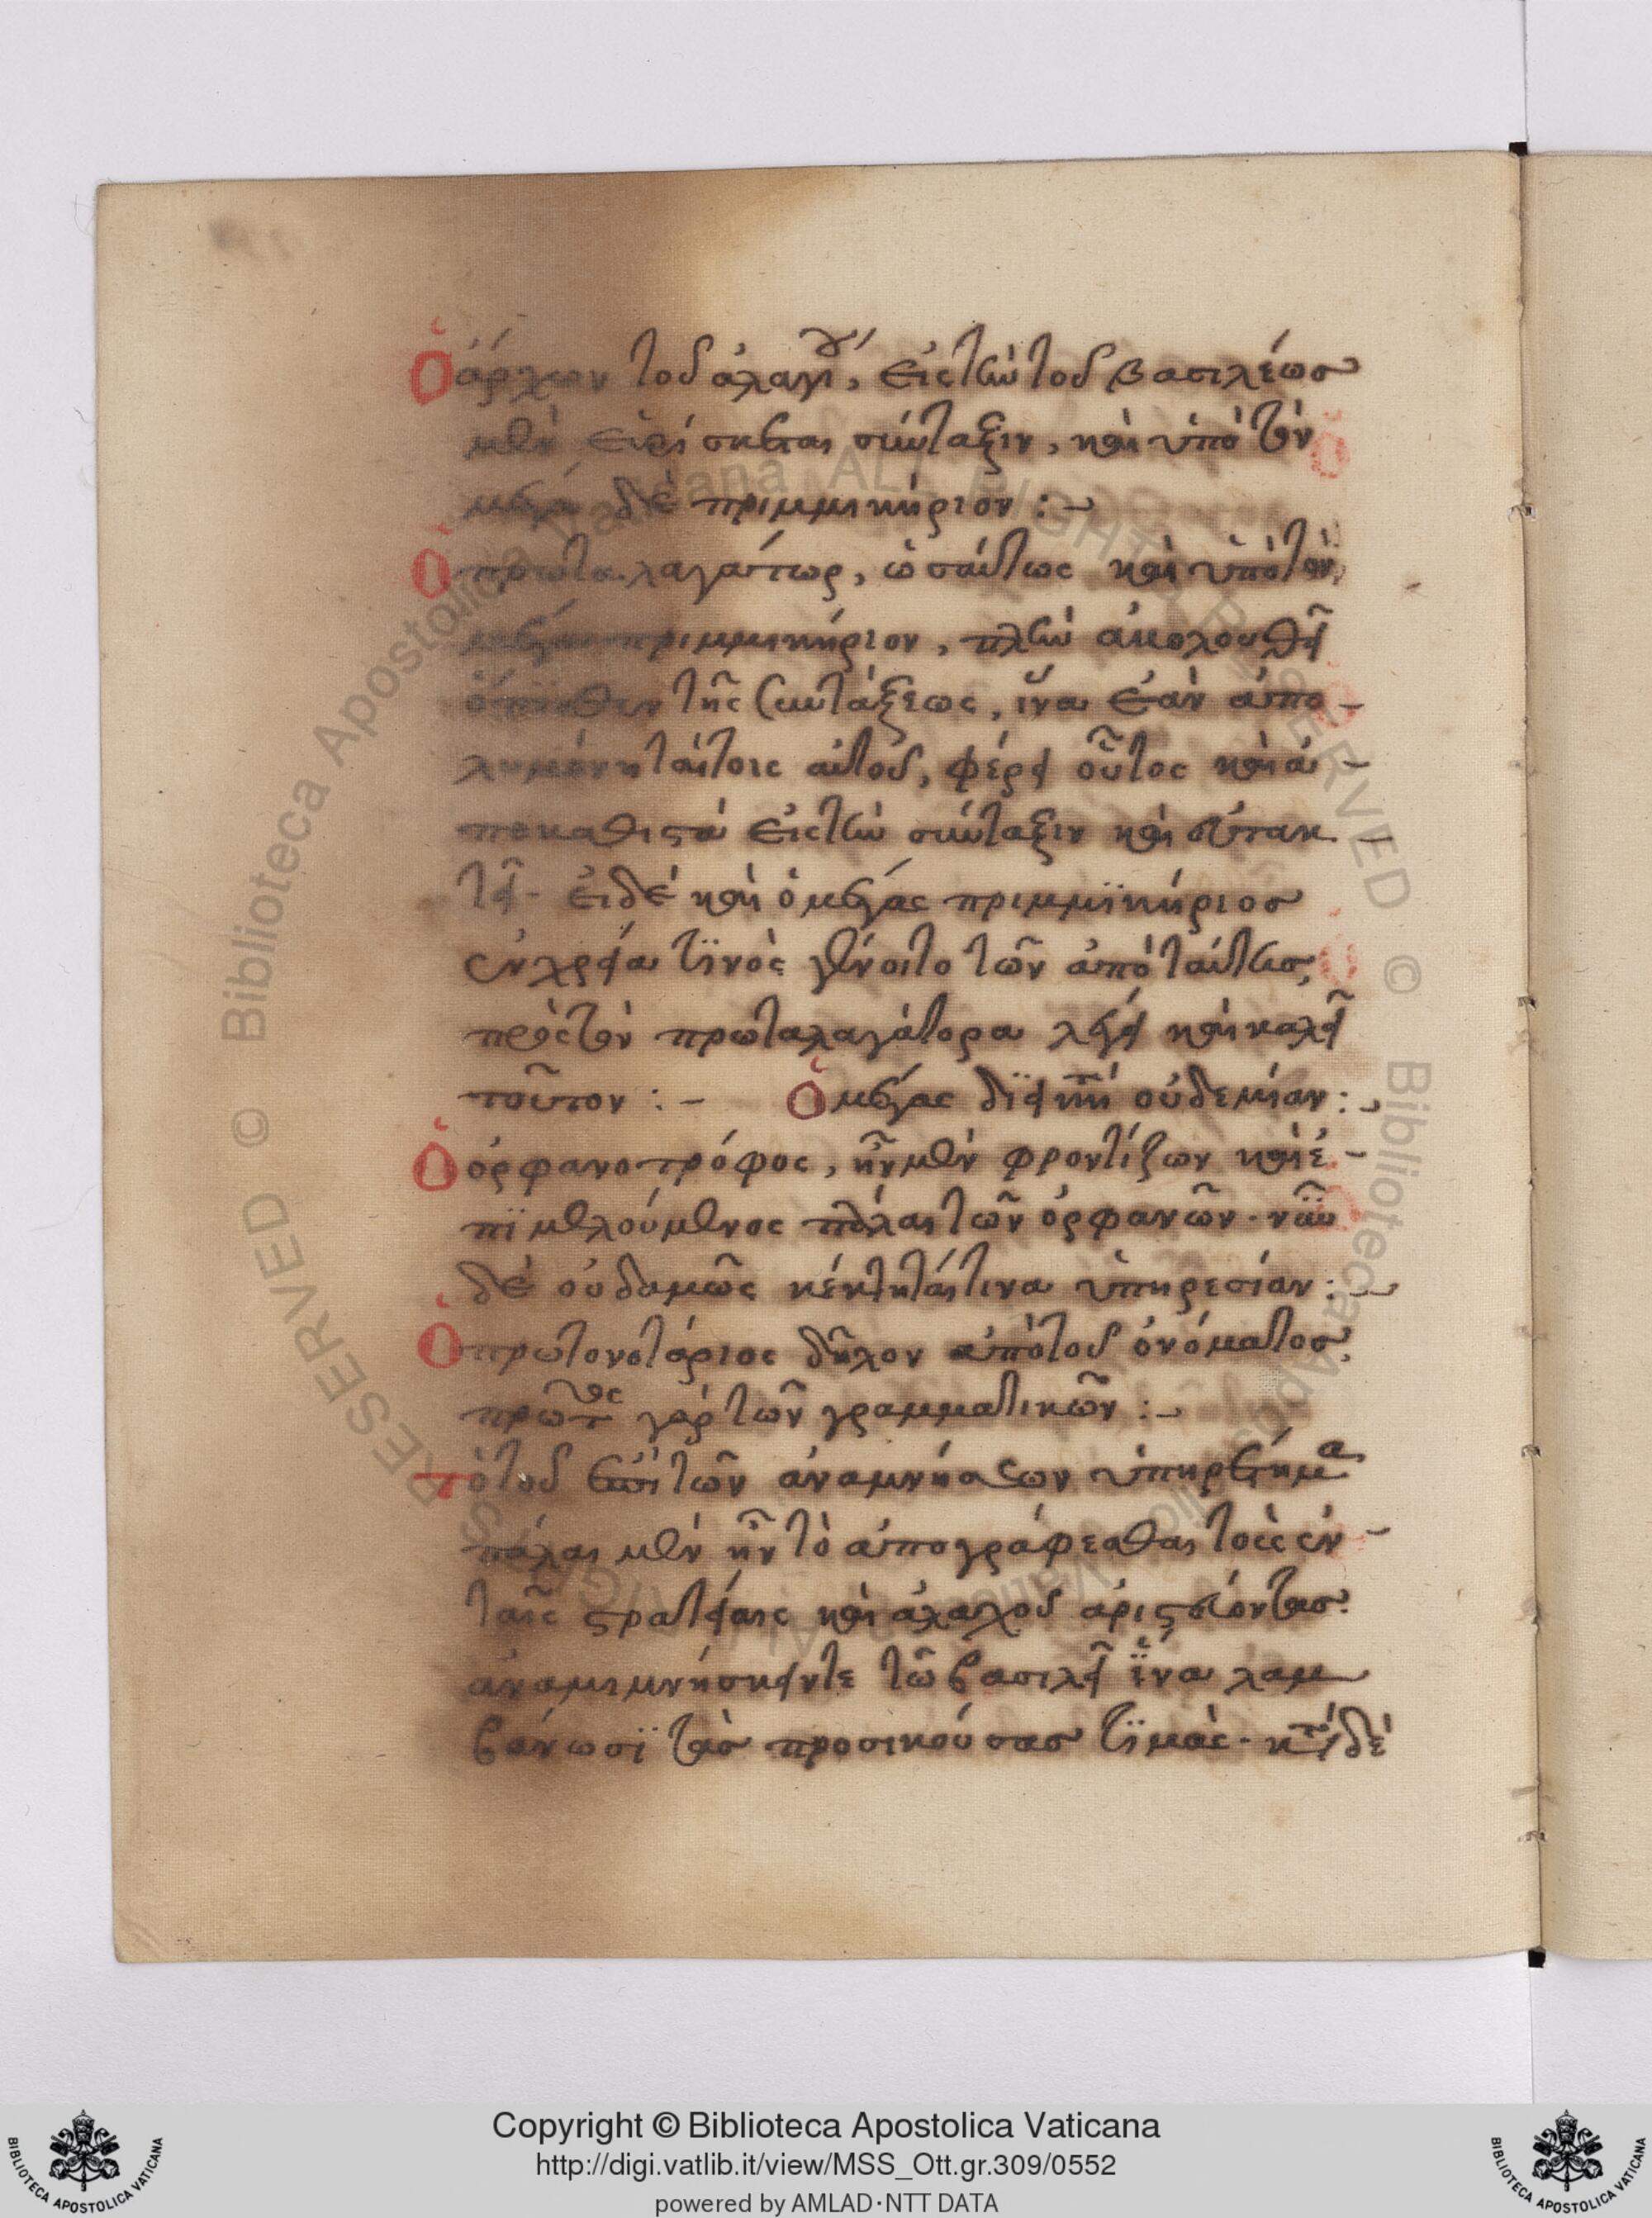 Ὁ ἄρχων τοῦ ἀλαγί, εἰς τὴν τοῦ βασιλέως
μὲν εὑρίσκεται σύνταξιν, καὶ ὑπὸ τὸν
μέγα δὲ πριμμικήριον :~
Ὁ πρωταλαγάτωρ, ὡσαύτως καὶ ὑπὸ τὸν
μέγαν πριμμικήριον, πλὴν ἀκολουθεῖ
ὄπισθεν τῆς συντάξεως, ἵνα ἐὰν ἀπο-
τις αὐτοῦ, φέρει οὗτος καὶ ἀ-
ποκαθιστᾶ εἰς τὴν σύνταξιν καὶ
εἰ δὲ καὶ ὁ μέγας πριμμϊκήριος
ἐν χρεία τϊνὸς γένοιτο τῶν ἀπὸ ταύτης,
πρὸς τὸν πρωταλαγάτορα λέγει καὶ καλεῖ
τοῦτον : - Ὁ μέγας δϊερμηνευτὴς οὐδεμίαν :
Ὁ ὀρφανοτρόφος, ἦν μὲν φροντίζων καὶ ἐ-
πϊμελούμενος πάλαι τῶν ὀρφανῶν · νῦν
δὲ οὐδαμῶς κέκτηταί τινα ὑπηρεσίαν :
Ὁ πρωτονοτάριος δῆλον ἀπὸ τοῦ ὀνόματος,
πρῶτος γὰρ τῶν γραμματικῶν :~
Τὸ τοῦ ἐπὶ τῶν ἀναμνήσεων ὑπηρέτημα
πάλαι μὲν ἦν τὸ ἀπογράφεσθαι τοὺς ἐν
ταῖς στρατείαις καὶ ἀλαχοῦ ἀριστεύοντας
ἀναμιμνήσκειν τε τῶ βασιλεῖ ἵνα λαμ
βάνωσϊ τὰς προσικούσας τϊμὰς · δὲ